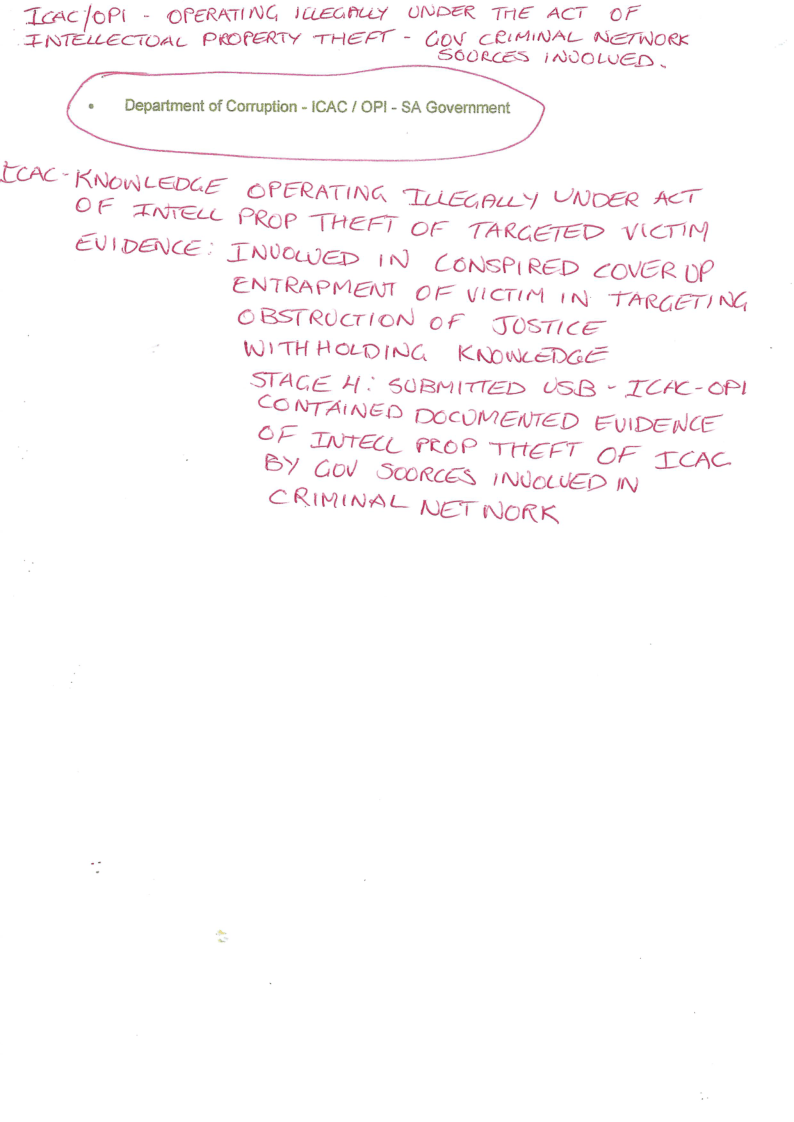 ICAC/OPI - OPERATING ILLEGALLY UNDER THE ACT OF
INTELLECTUAL PROPERTY THEFT - GOV CRIMINAL NETWORK
SOURCES INVOLVED.
• Department of Corruption - ICAC / OPI - SA Government
ICAC - KNOWLEDGE OPERATING ILLEGALLY UNDER ACT
OF INTELL PROP THEFT OF TARGETED VICTIM
EVIDENCE: INVOLVED IN CONSPIRED COVER UP
ENTRAPMENT OF VICTIM IN TARGETING
OBSTRUCTION OF JUSTICE
WITHHOLDING KNOWLEDGE
STAGE 4: SUBMITTED USB - ICAC-OPI
CONTAINED DOCUMENTED EVIDENCE
OF INTELL PROP THEFT OF ICAC
BY GOV SOURCES INVOLVED IN
CRIMINAL NETWORK